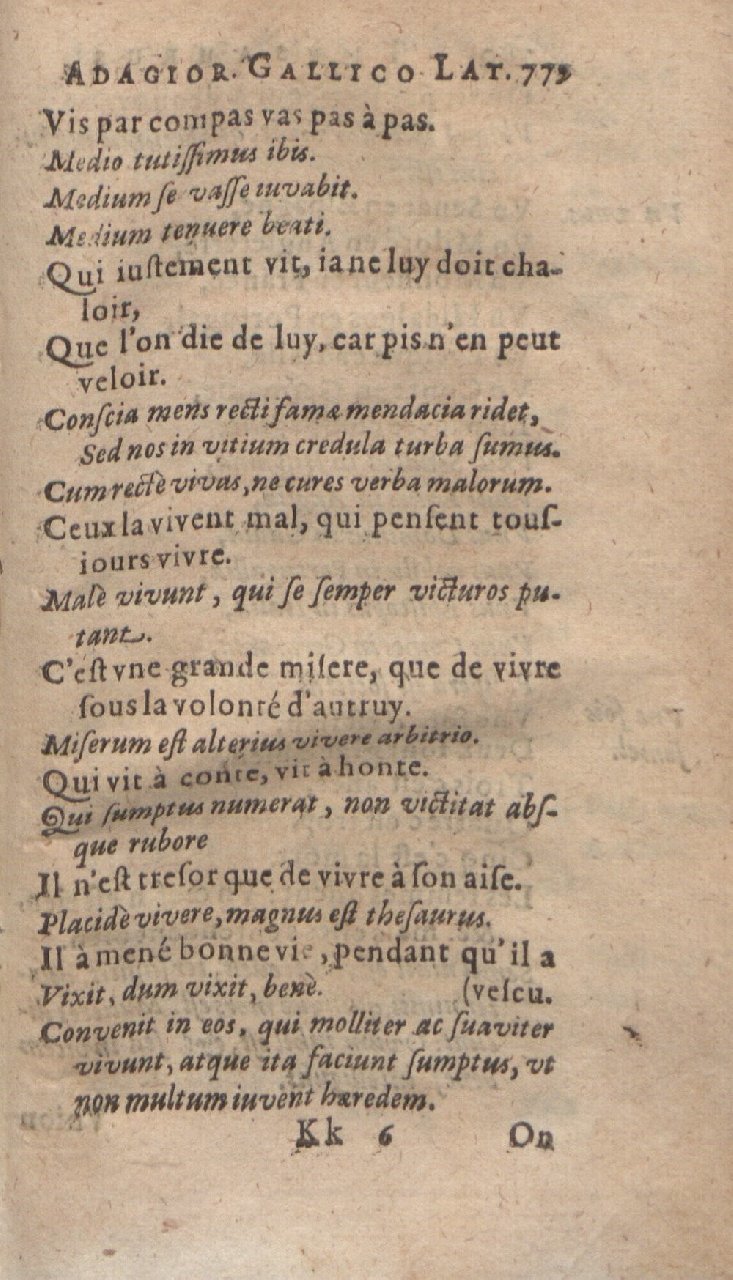 ADAGIOR. GALLICO LAT. 779
Vis par compas vas pas à pas.
Medio tutiſſimus ibis.
Medium ſe vaſſe iuvabit.
Medium tenuere beati.
Qui iuſtement vit, ia ne luy doit cha-
loir,
Que l'on die de luy, car pis n'en peut
veloir.
Conſcia mens recti famæ mendacia ridet,
Sed nos in vitium credula turba ſumus.
Cum rectè vivas, ne cures verba malorum.
Ceux la vivent mal, qui penſent touſ-
iours vivre.
Malè vivunt, qui ſe ſemper victuros pu-
tant.
C'eſt vne grande miſere, que de vivre
ſous la volonté d'autruy.
Miſerum eſt alterius vivere arbitrio.
Qui vit à conte, vit à honte.
Qui ſumptus numerat, non victitat abſ-
que rubore
Il n'eſt treſor que de vivre à ſon aiſe.
Placidè vivere, magnus eſt theſaurus.
Il à mené bonne vie, pendant qu'il a
Vixit, dum vixit, benè. (veſcu.
Convenit in eos, qui molliter ac ſuaviter
vivunt, atque ita faciunt ſumptus, vt
non multum iuvent hæredem.
Kk 6 On